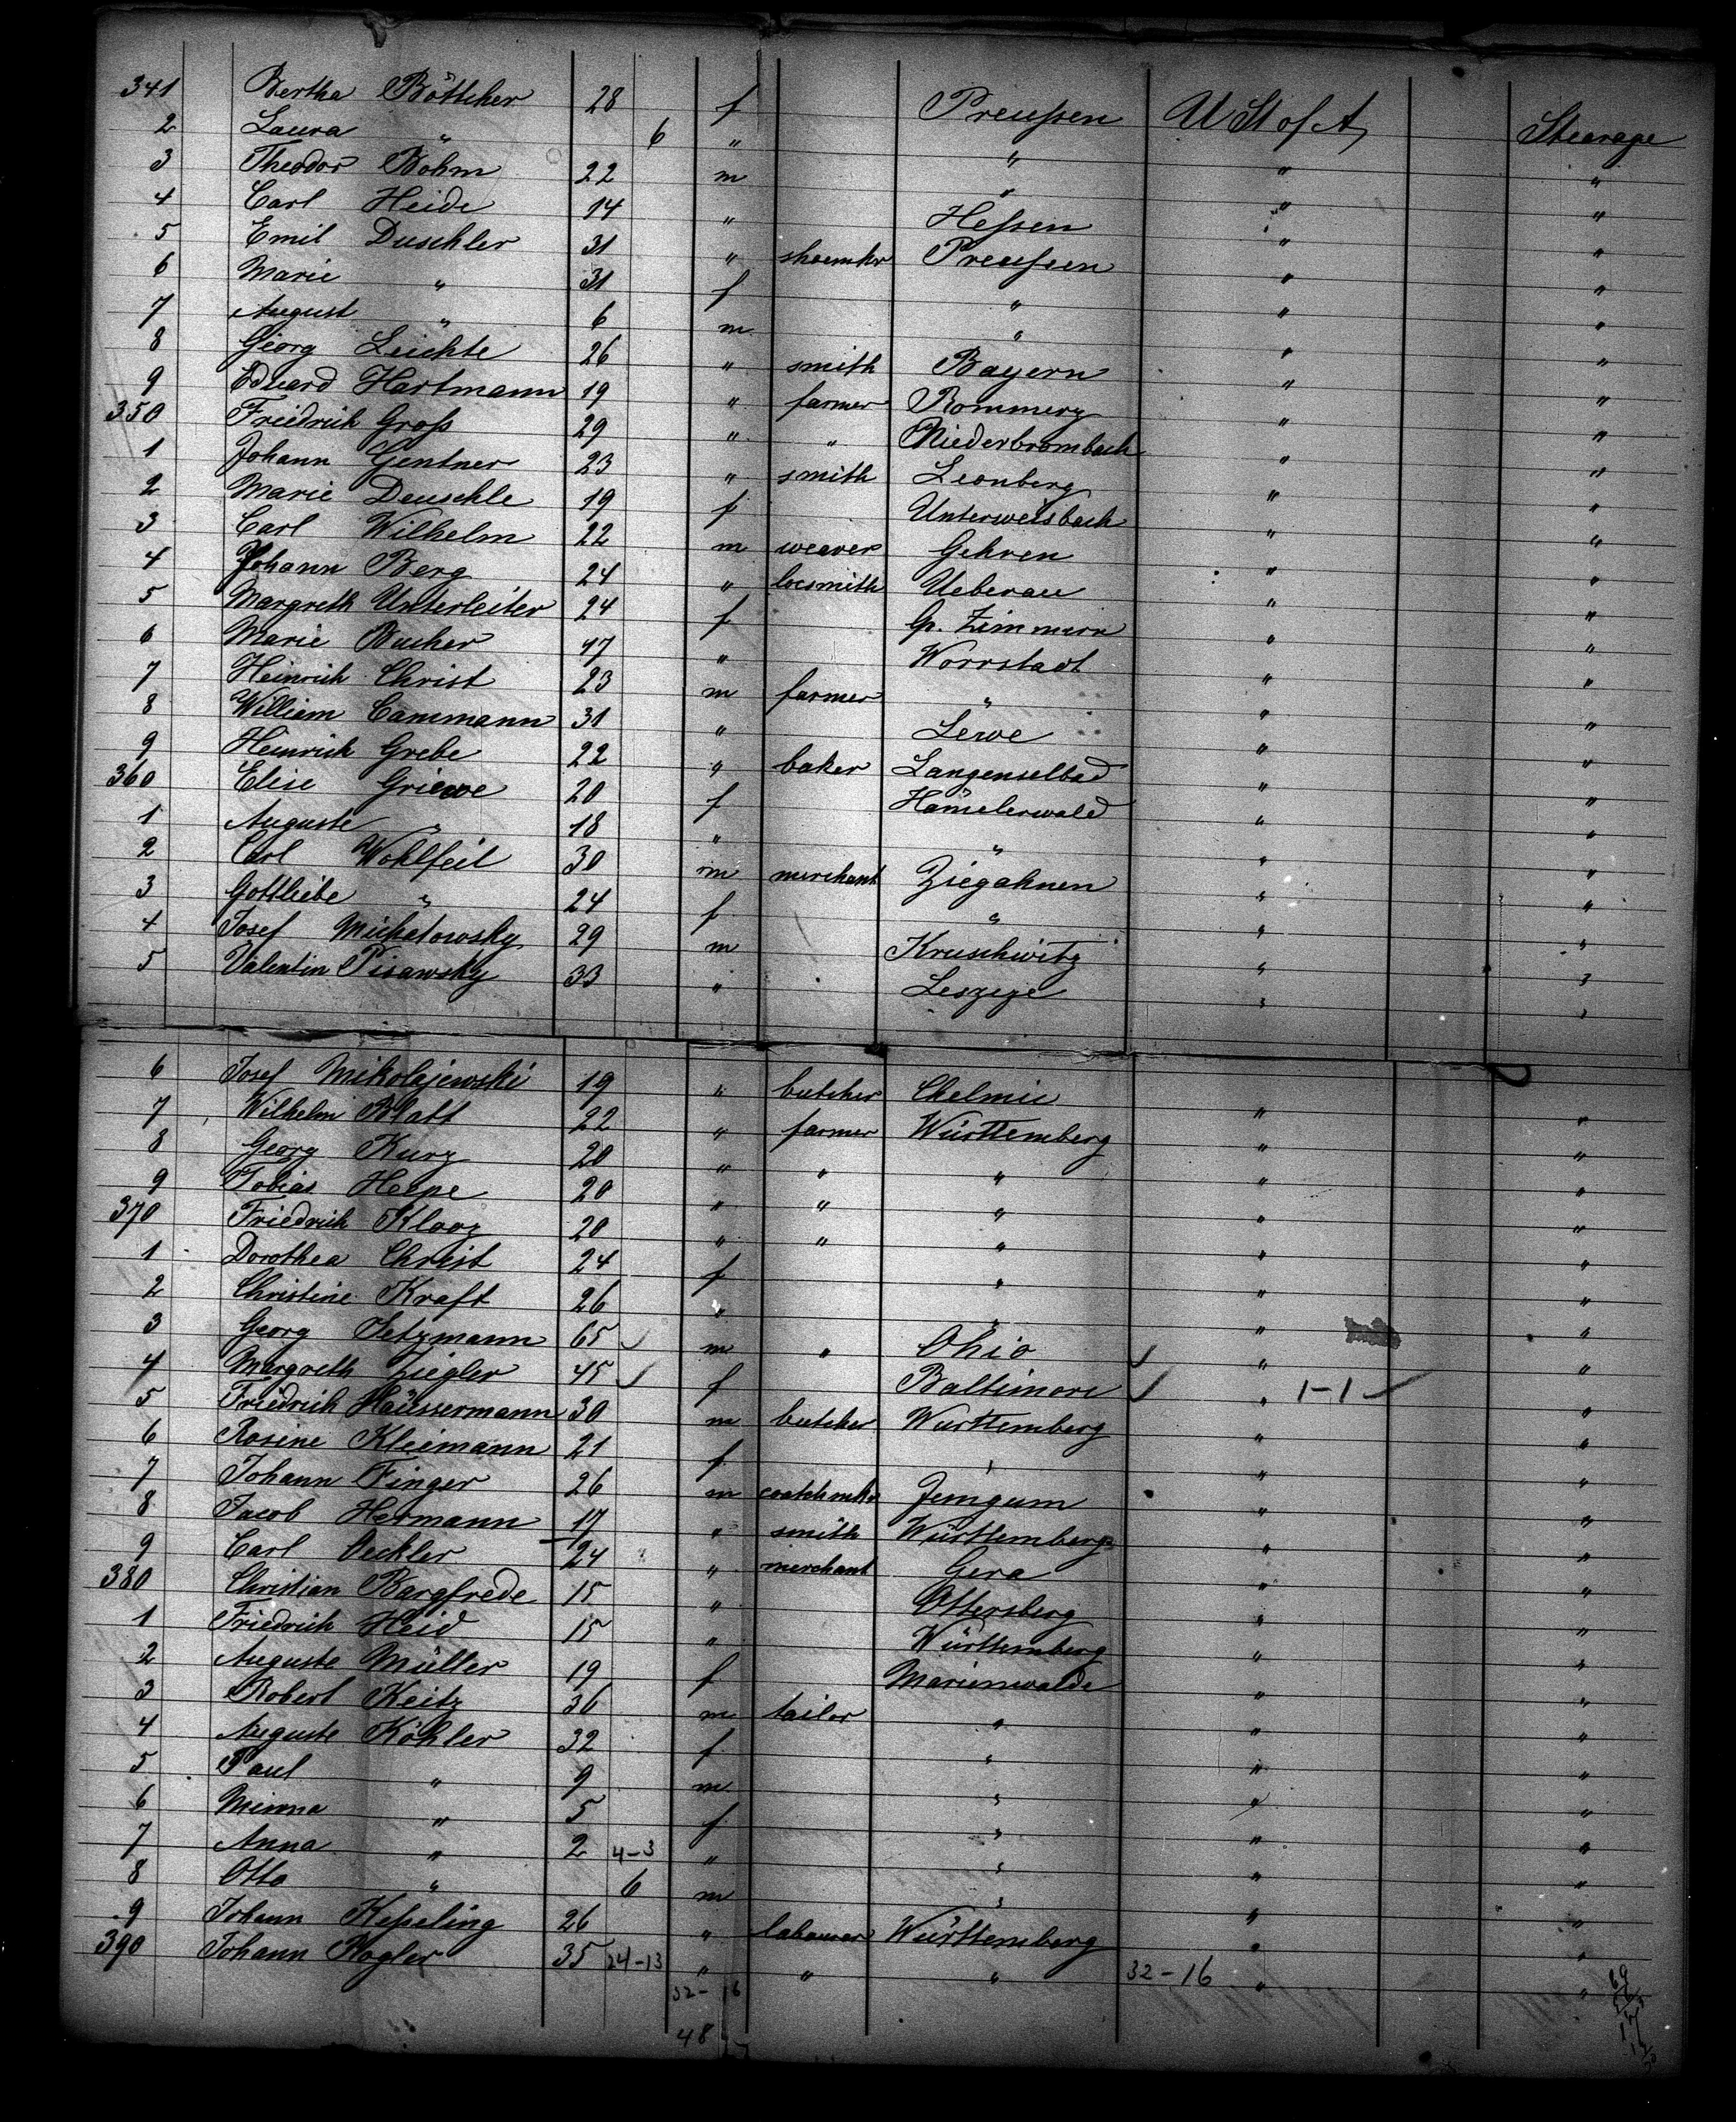 341 Bertha Böttcher 28 f Preußen U St of A, Steerage
2 Laura " 6 " " " "
3 Theodor Böhm 22 m " " "
4 Carl Heide 14 " Heßen " "
5 Emil Duschler 31 " shoemkr Preußen " "
6 Marie " 31 f " " "
7 August " 6 m " " "
8 Georg Leichte 26 " smith Bayern " "
9 Eduard Hartmann 19 " farmer " "
350 Friedrich Groß 29 " " Niederbrombach " "
1 Johann Gentner 23 " smith Leonberg " "
2 Marie Deuschle 19 f Unterweisbach " "
3 Carl Wilhelm 22 m weaver Gehren " "
4 Johann Berg 24 " locsmith Ueberau " "
5 Margreth Unterleiter 24 f Gr. Zimmern " "
6 Marie Bucher 47 " Worrstadt " "
7 Heinrich Christ 23 m farmer " " "
8 William Cammann 31 " Lewe " "
9 Heinrich Grebe 22 " baker Langenselbod " "
360 Elise Griewe 20 f Hämelerwald " "
1 Auguste " 18 " " " "
2 Carl Wohlfeil 30 m merchant Ziegahnen " "
3 Gottliebe " 24 f " " "
4 Josef Michelowsky 29 m Kruschwitz " "
5 Valentin Pisawsky 33 " Leszyge " "
6 Josef Mikolajewski 19 " butcher Chelmic " "
7 Wilhelm Blatt 22 " farmer Württemberg " "
8 Georg Kurz 20 " " " " "
9 Tobias Hespe 20 " " " " "
370 Friedrich Klooz 20 " " " " "
1 Dorothea Christ 24 f " " "
2 Christine Kraft 26 " " " "
3 Georg Setzmann 65 m " Ohio " "
4 Margreth Ziegler 45 f Baltimore " 1-1 "
5 Friedrich Häussermann 30 m butcher Württemberg " "
6 Rosine Kleimann 21 f " " "
7 Johann Finger 26 m coatchmkr Jemgum " "
8 Jacob Hermann 17 " smith Württemberg " "
9 Carl Oechler 24 " merchant Gera " "
380 Christian Bargfrede 15 " Ottersberg " "
1 Friedrich Heid 15 " Württemberg " "
2 Auguste Müller 19 f Marienwalde " "
3 Robert Keitz 36 m tailor " " "
4 Auguste Köhler 32 f " " "
5 Paul " 9 m " " "
6 Minna " 5 f " " "
7 Anna " 2 4-3 " " " "
8 Otto " 6 m " " "
9 Johann Keßeling 26 " labourer Württemberg " "
390 Johann Kogler 35 24-13 " " " 32-16 " "
32-16
48